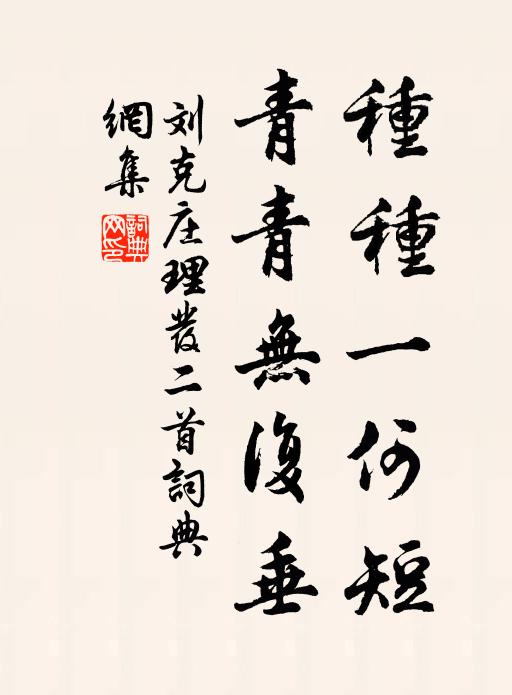 種種一何短
青青無復垂
刘克庄理發二首詞典
網集
詞典網印